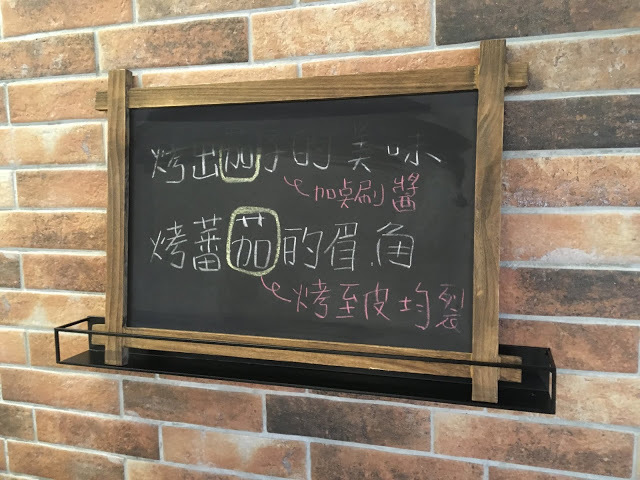 烤出茄子的美味
加桌刷醬
烤蕃茄的眉角
烤至皮均裂